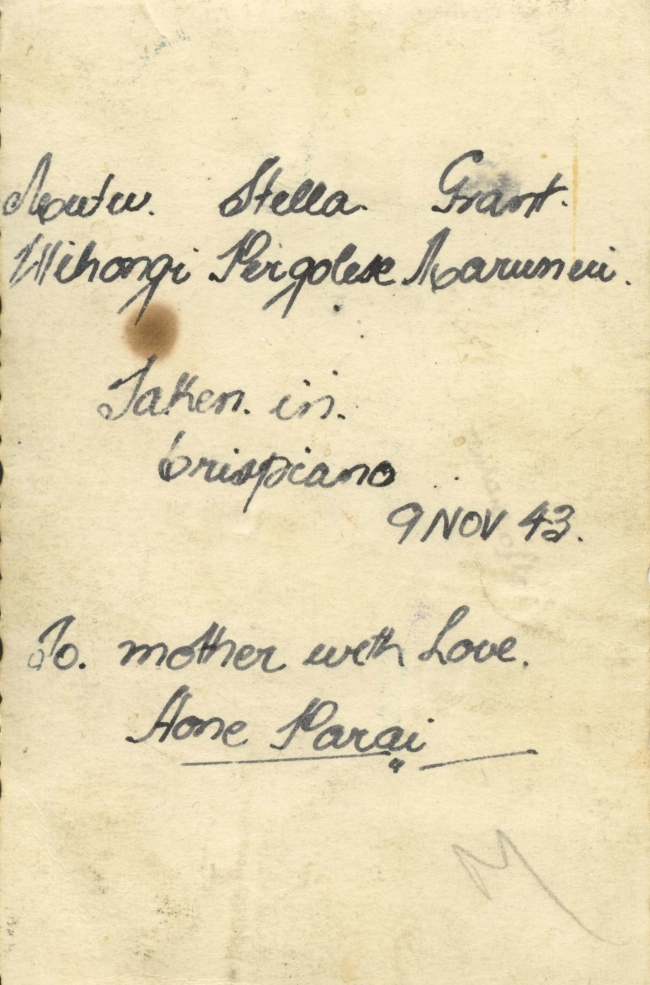 Stella. Grant.
Wihongi Pergolese
Taken. in.
Crispiano
9 NOV 43.
To. mother with Love.
Hone Parai